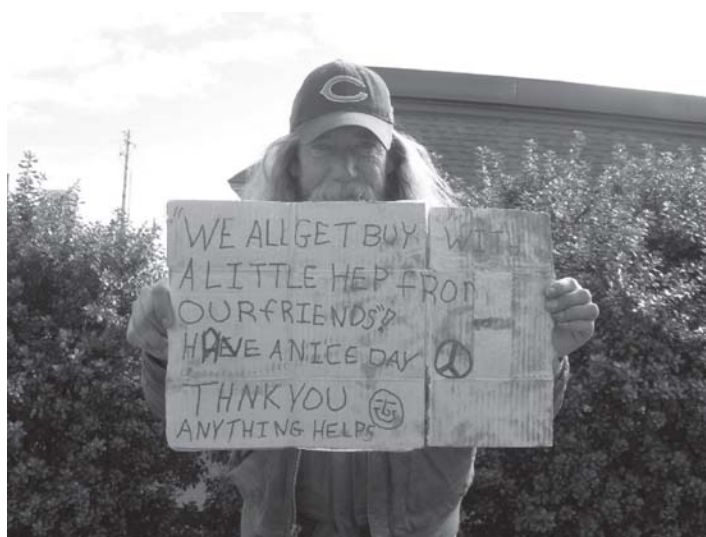 C
"WE ALL GET BUY WITH
A LITTLE HEP FROM
OUR FRIENDS"!
HAVE A NICE DAY
THNK YOU
ANYTHING HELPS